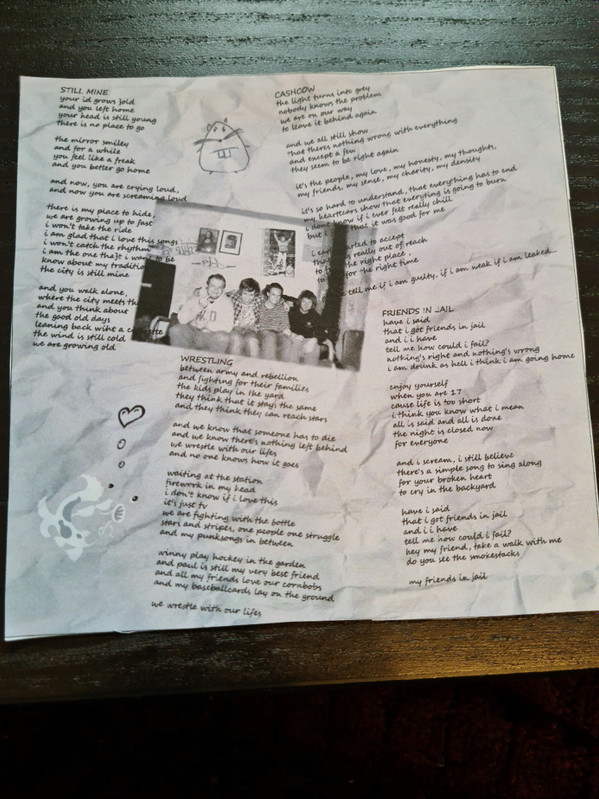 STILL MINE
your id grows 3old
and you left home
your head is still young
there is no place to go
the mirror smiley
and for a while
you feel like a freak
and you better go home
and now, you are crying loud,
and now you are screaming loud
there is my place to hide,
we are growing up to fast
i won't take the ride
i am glad that i love this songs
i won't catch the rhythm
i am the one tha3t i want to be
know about my tradition
the city is still mine
and you walk alone,
where the city meets th
and you think about
the good old days
leaning back wiht a c
the wind is still cold
we are growing old
CASHCOW
the light turns into grey
nobody knows the problem
we are on our way
to leave it behind again
and we all still show
that theres nothing wrong with everything
and except a few
they seem to be right again
it's the people, my love, my honesty, my thoughts,
my friends, my sense, my charity, my density
it's so hard to understand, that everything has to end
my heartcears show that everyting is going to burn
i don't know if i ever felt really chill
but that it was good for me
started to accept
really out of reach
the right place,
for the right time
tell me if i am guilty, if i am weak if i am leaked...
WRESTLING
between army and rebellion
and fighting for their families
the kids play in the yard
they think that it stays the same
and they think they can reach stars
and we know that someone has to die
and we know there's nothing left behind
we wrestle with our lifes
and no one knows how it goes
waiting at the station
firework in my head
i don't know if i love this
it's just tv
we are fighting with the bottle
stars and stripes, one people one struggle
and my punksongs in between
winny play hockey in the garden
and paul is still my very best friend
and all my friends love our cornbobs
and my baseballcards lay on the ground
we wrestle with our lifes
FRIENDS IN JAIL
have i said
that i got friends in jail
and i i have
tell me how could i fail?
nothing's right and nothing's wrong
i am drunk as hell i think i am going home
enjoy yourself
when you are 17
cause life is too short
i think you know what i mean
all is said and all is done
the night is closed now
for everyone
and i scream, i still believe
there's a simple song to sing along
for your broken heart
to cry in the backyard
have i said
that i got friends in jail
and i i have
tell me how could i fail?
hey my friend, take a walk with me
do you see the smokestacks
my friends in jail